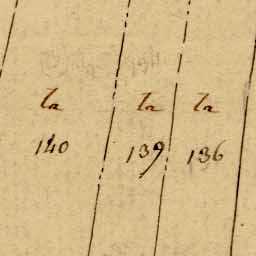 Za Za Za
140 139 136